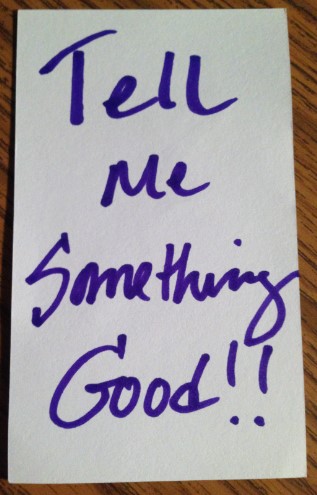 Tell
Me
Something
Good!!